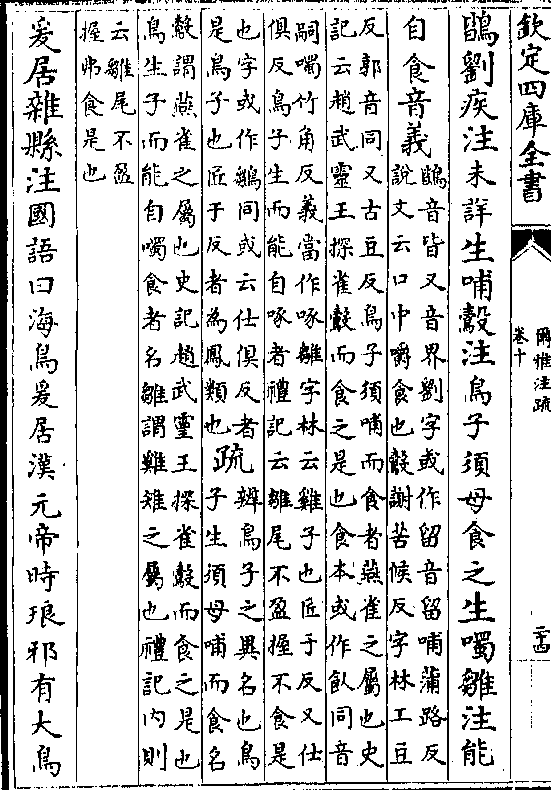 欽定四庫全書
爾雅注疏
卷十
二十四
鶛劉疾注未詳生哺鷇注鳥子須母食之生噣雛注能
自食音義
鶛音皆又音界劉字或作留音留哺蒲路反
說文云口中嚼食也鷇謝苦候反字林工豆
反郭音同又古豆反鳥子須哺而食者燕雀之屬也史
記云趙武靈王探雀鷇而食之是也食本或作飤同音
嗣噣竹角反義當作啄雛字林云雞子也匠于反又仕
俱反鳥子生而能自啄者禮記云雛尾不盈握不食是
也字或作鶵同或云仕俱反者
是鳥子也匠于反者為鳳類也
疏
辨鳥子之異名也鳥
子生須母哺而食名
鷇謂燕雀之屬也史記趙武靈王探雀鷇而食之是也
鳥生子而能自噣食者名雛謂雞雉之屬也禮記內則
云雛尾不盈
握弗食是也
爰居雜縣注國語曰海鳥爰居漢元帝時琅邪有大鳥